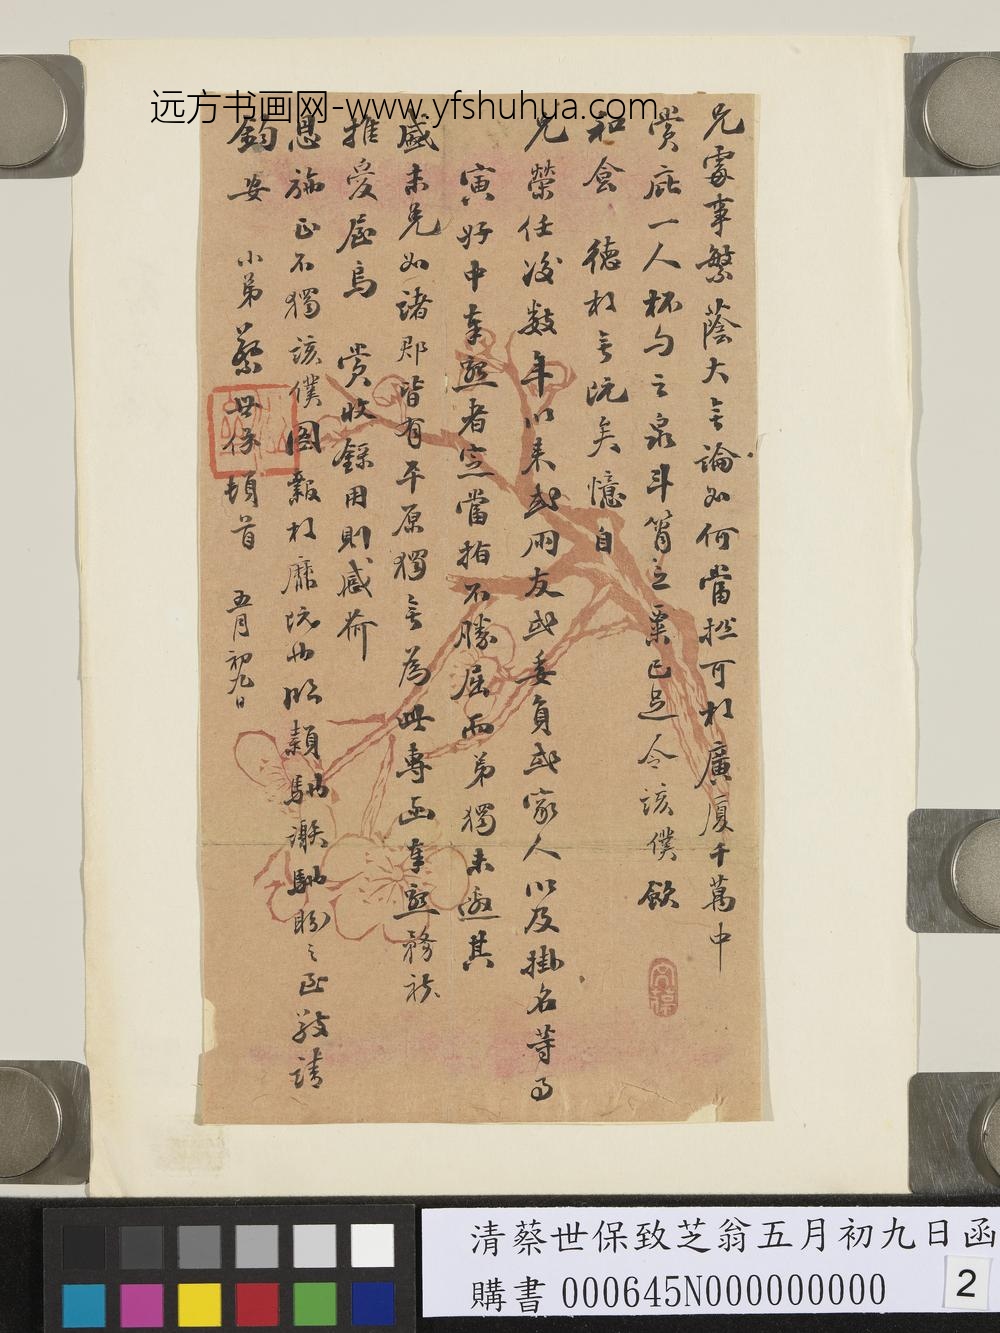 远方书画网-www.yfshuhua.com
兄處事繁蔭大無論如何當擬可於廣厦千萬中
賞庇一人杯勺之泉斗筲之粟已足令該僕飲
和食 德於無既矣憶自
兄榮任後數年以來或朋友或委員或家人以及掛名等等
寅好中奉懇者定當指不勝屈而弟獨未邀其
盛未免如諸郡皆有平原獨無為此專函奉懇務祈
推愛屋烏 賞收錄用則感荷
恩施正不獨該僕圖報於靡既也臨穎馳謝馳盼之至敬請
鈞安 小弟蔡世保頓首 五月初九日
清蔡世保致芝翁五月初九日函
購書 000645N000000000
2